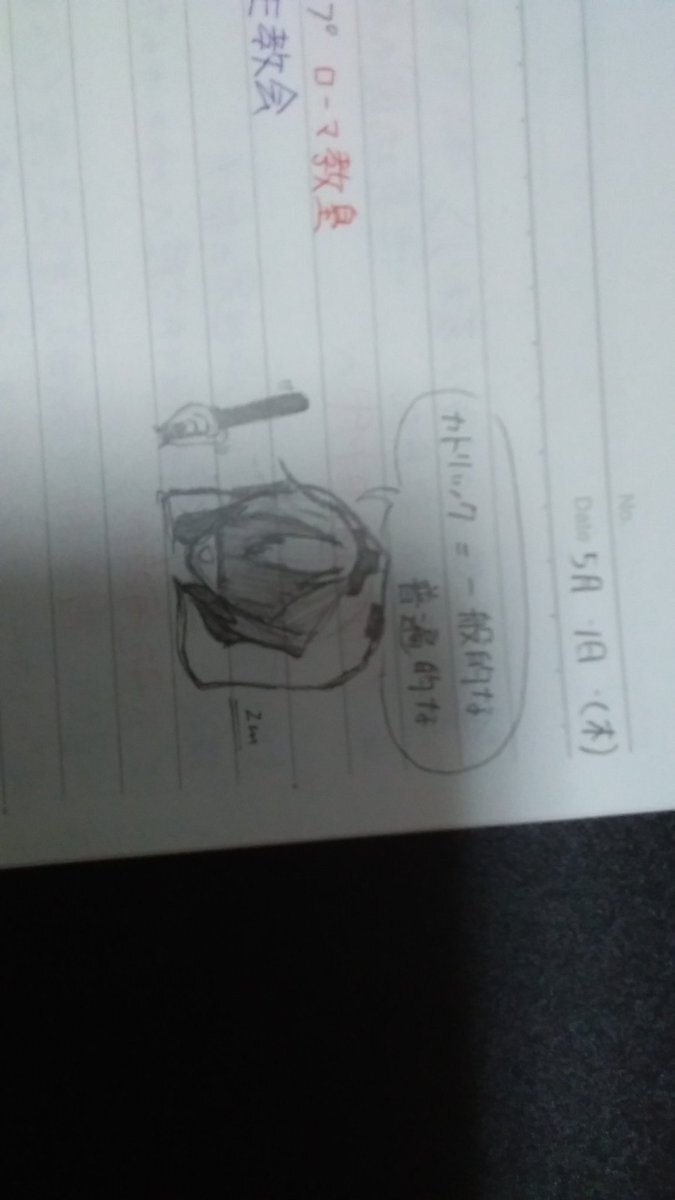 No.
Date 5月・1日・(木)
カトリック = 一般的な
普遍的な
プ ローマ教皇
教会